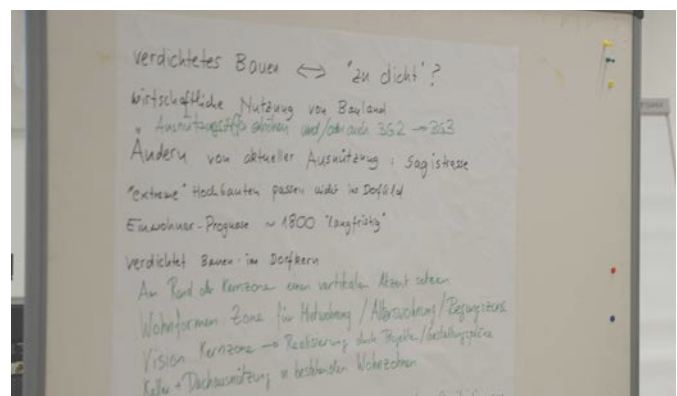 verdichtetes Bauen ⟷ "zu dicht"?
wirtschaftliche Nutzung von Bauland
Ausnützungsziffer erhöhen und/oder auch 3G2 → 3G3
Ändern von aktueller Ausnützung: Sagistrasse
"extreme" Hochbauten passen nicht ins Dorfbild
Einwohner-Prognose ~ 1800 "langfristig"
verdichtet Bauen im Dorfkern
Am Rand der Kernzone einen vertikalen Akzent setzen
Wohnformen Zone für / Alterswohnung /
Vision Kernzone → Realisierung durch Projekte / Gestaltungspläne
Keller + Dachausnützung in bestehenden Wohnzonen